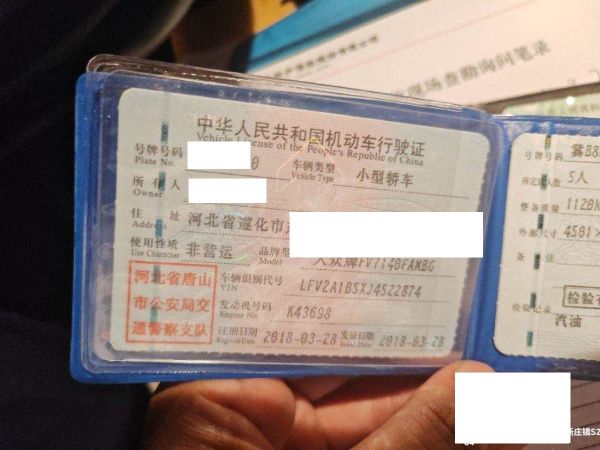 现场查勘询问笔录
中华人民共和国机动车行驶证
Vehicle License of the People's Republic of China
号牌号码 0
Plate No
车辆类型 小型轿车
Vehicle Type
所有人
Owner
住址 河北省遵化市
Address
使用性质 非营运
Use Character
品牌型 大众牌FV7146FAMBG
Model
河北省唐山
市公安局交
通警察支队
车辆识别代号 LFV2A1BSXJ4522874
VIN
发动机号码 K43698
Engine No.
注册日期 2018-03-28 发证日期 2018-03-28
Register Date Issue Date
号牌号码 冀B8
核定人数 5人
整备质量 1120K
外廓尺寸 4501×
备注
检验记录
检验有
汽油
庄镇S2